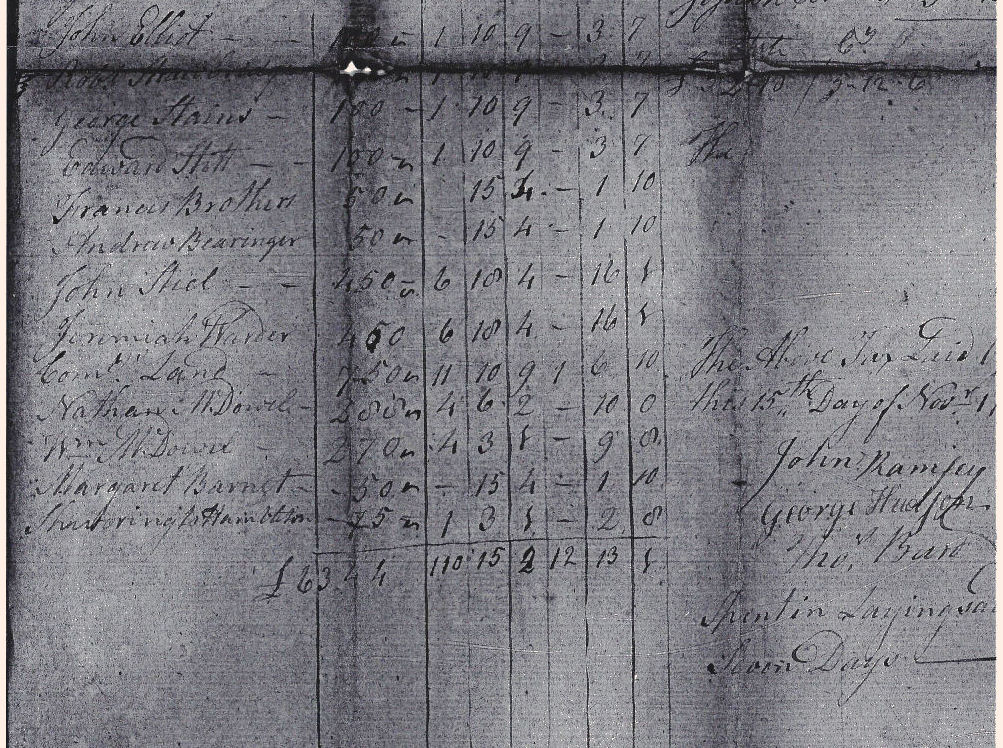 John Elliot - - 1 10 9 - 3 7
George Stains - 100 - 1 10 9 - 3 7
Edward Stett - - 100 " 1 10 9 - 3 7
Francis Brothers 50 " 15 4 - 1 10
Andrew Bearinger 50 " - 15 4 - 1 10
John Stiel - - 450 " 6 18 4 - 16 5
Jeremiah Warder 450 6 18 4 - 16 5
Land - 750 " 11 10 9 1 6 10
Nathan McDowel - 288 " 4 6 2 - 10 0
Wm McDowel - 270 " 4 3 5 - 9 8
Margaret Barnet - 50 " - 15 4 - 1 10
Hambleton - 75 " 1 3 5 - 2 8
£ 6344 110 15 2 12 13 5
3-12-6
The
The Above Tax Laid
this 15th Day of Novr
John Ramsey
George Hudson
Thos. Bard
Spent in Laying
Seven Days